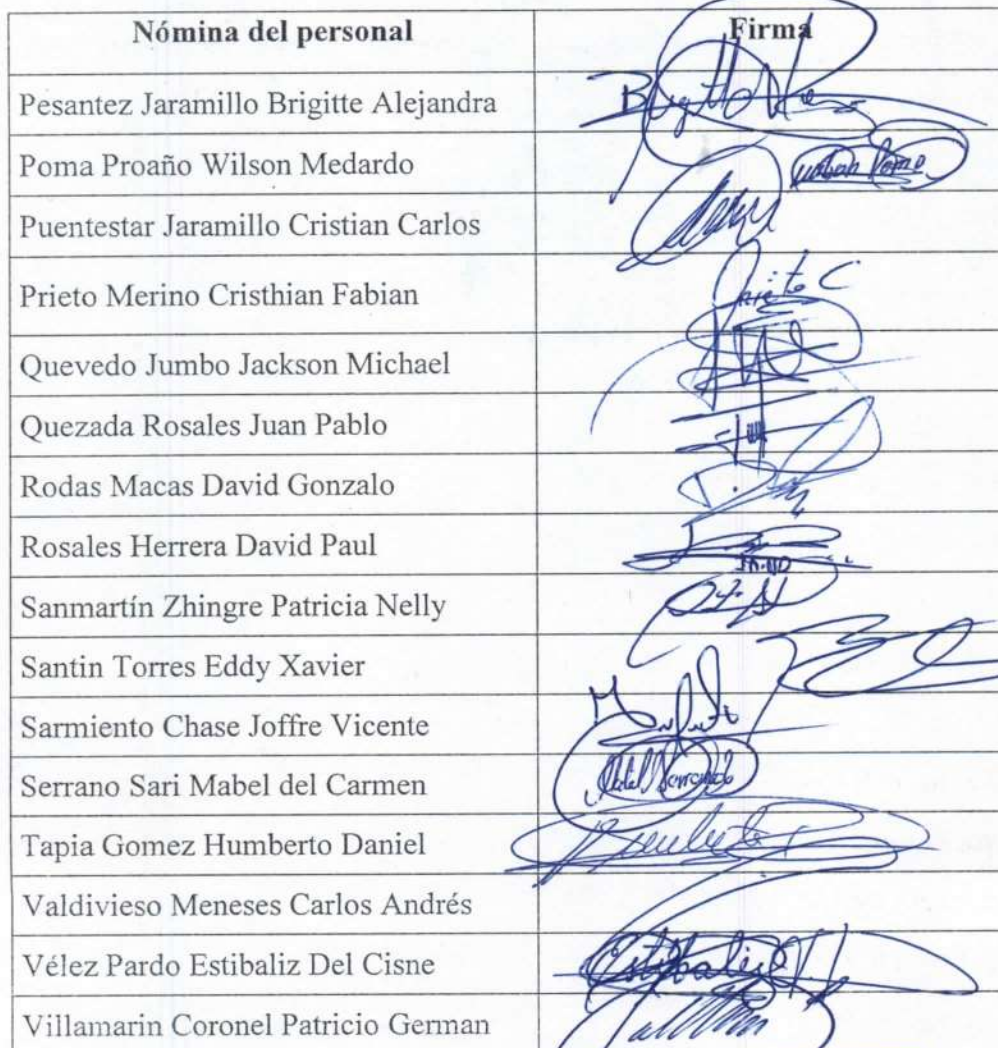 Nómina del personal Firma
Pesantez Jaramillo Brigitte Alejandra
Poma Proaño Wilson Medardo
Puentestar Jaramillo Cristian Carlos
Prieto Merino Cristhian Fabian Prieto C
Quevedo Jumbo Jackson Michael
Quezada Rosales Juan Pablo
Rodas Macas David Gonzalo
Rosales Herrera David Paul
Sanmartín Zhingre Patricia Nelly
Santin Torres Eddy Xavier
Sarmiento Chase Joffre Vicente
Serrano Sari Mabel del Carmen Mabel Serrano
Tapia Gomez Humberto Daniel Humberto
Valdivieso Meneses Carlos Andrés
Vélez Pardo Estibaliz Del Cisne Estibaliz
Villamarin Coronel Patricio German